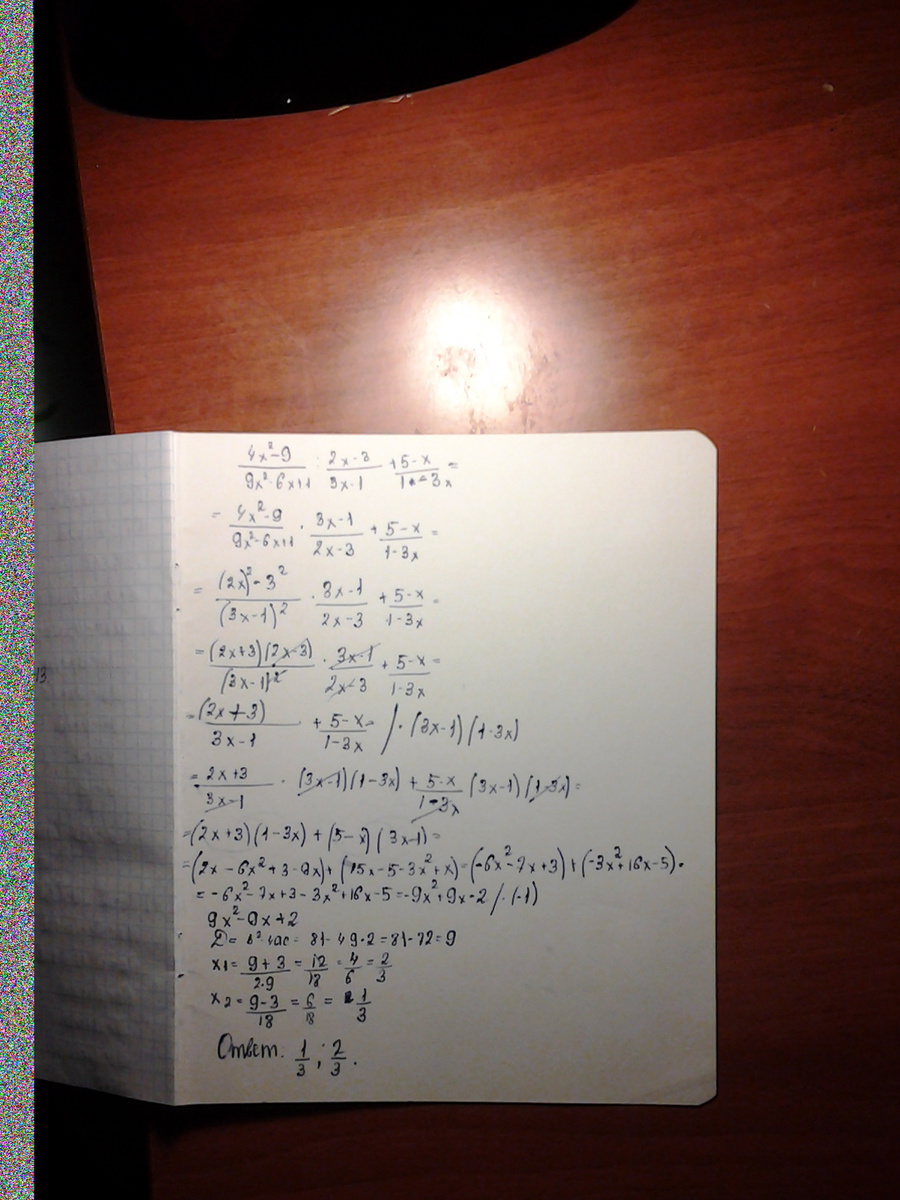 13
(4x²-9)/(9x²-6x+1) : (2x-3)/(3x-1) + (5-x)/(1-3x) =
= (4x²-9)/(9x²-6x+1) · (3x-1)/(2x-3) + (5-x)/(1-3x) =
= ((2x)²-3²)/((3x-1)²) · (3x-1)/(2x-3) + (5-x)/(1-3x) =
= ((2x+3)(2x-3))/((3x-1)²) · (3x-1)/(2x-3) + (5-x)/(1-3x) =
= (2x+3)/(3x-1) + (5-x)/(1-3x) = / · (3x-1)(1-3x)
= (2x+3)/(3x-1) · (3x-1)(1-3x) + (5-x)/(1-3x) (3x-1)(1-3x) =
= (2x+3)(1-3x) + (5-x)(3x-1) =
= (2x-6x²+3-9x) + (15x-5-3x²+x) = (-6x²-7x+3) + (-3x²+16x-5) =
= -6x²-7x+3-3x²+16x-5 = -9x²+9x-2 / · (-1)
9x²-9x+2
D = b²-4ac = 81-4·9·2 = 81-72 = 9
x1 = (9+3)/(2·9) = 12/18 = 4/6 = 2/3
x2 = (9-3)/18 = 6/18 = 1/3
Ответ: 1/3 ; 2/3.